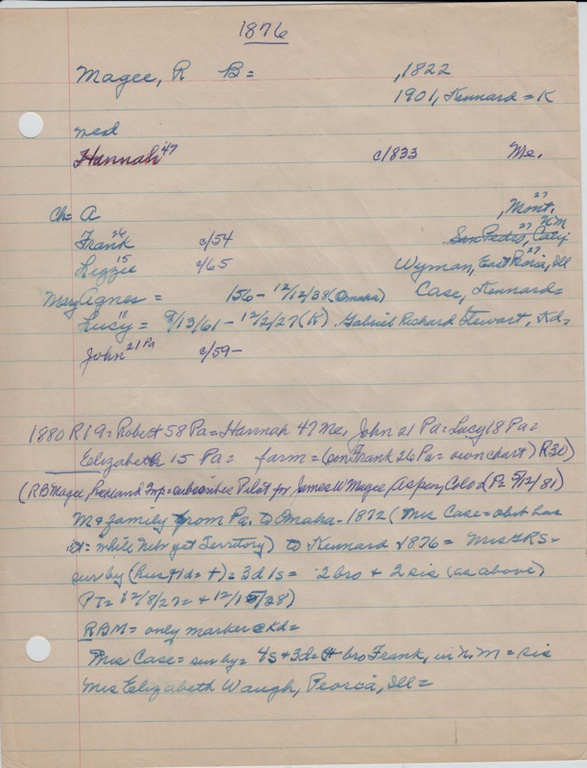 1876
Magee, R B = ,1822
1901, Kennard = K
med
Hannah 47 c/833 Me.
Ch = A ,Mont. 27
Frank 26 c/54 San Pedro, 27 Calif. N M
Lizzie 15 c/65 Wyman, East Peoria, Ill 27
Mary Agnes = 156 - 12/12/38 (Omaha) Case, Kennard =
Lucy 18 = 9/13/61 - 12/2/27 (K) Gabriel Richard Stewart, Kd =
John 21 Pa c/59 -
1880 R19 = Robert 58 Pa = Hannah 47 Me, John 21 Pa = Lucy 18 Pa =
Elizabeth 15 Pa = farm = (on Frank 26 Pa = own chart) R30)
(RB Magee, Richland Twp = subscribes Pilot for James W Magee, Aspen, Colo d (P = 5/12/81)
M & family from Pa. to Omaha - 1872 (Mrs Case = obit has
it = while Neb yet Territory) to Kennard 1876 = Mrs GRS =
sur by (hus + 1d = +) = 3d 1s = 2 bro + 2 sis (as above)
PT = 12/8/27 = + 12/15/38)
RBM = only marker c Kd =
Mrs Case = sur by = 4s + 3d = + bro Frank, in N. M = sis
Mrs Elizabeth Waugh, Peoria, Ill =